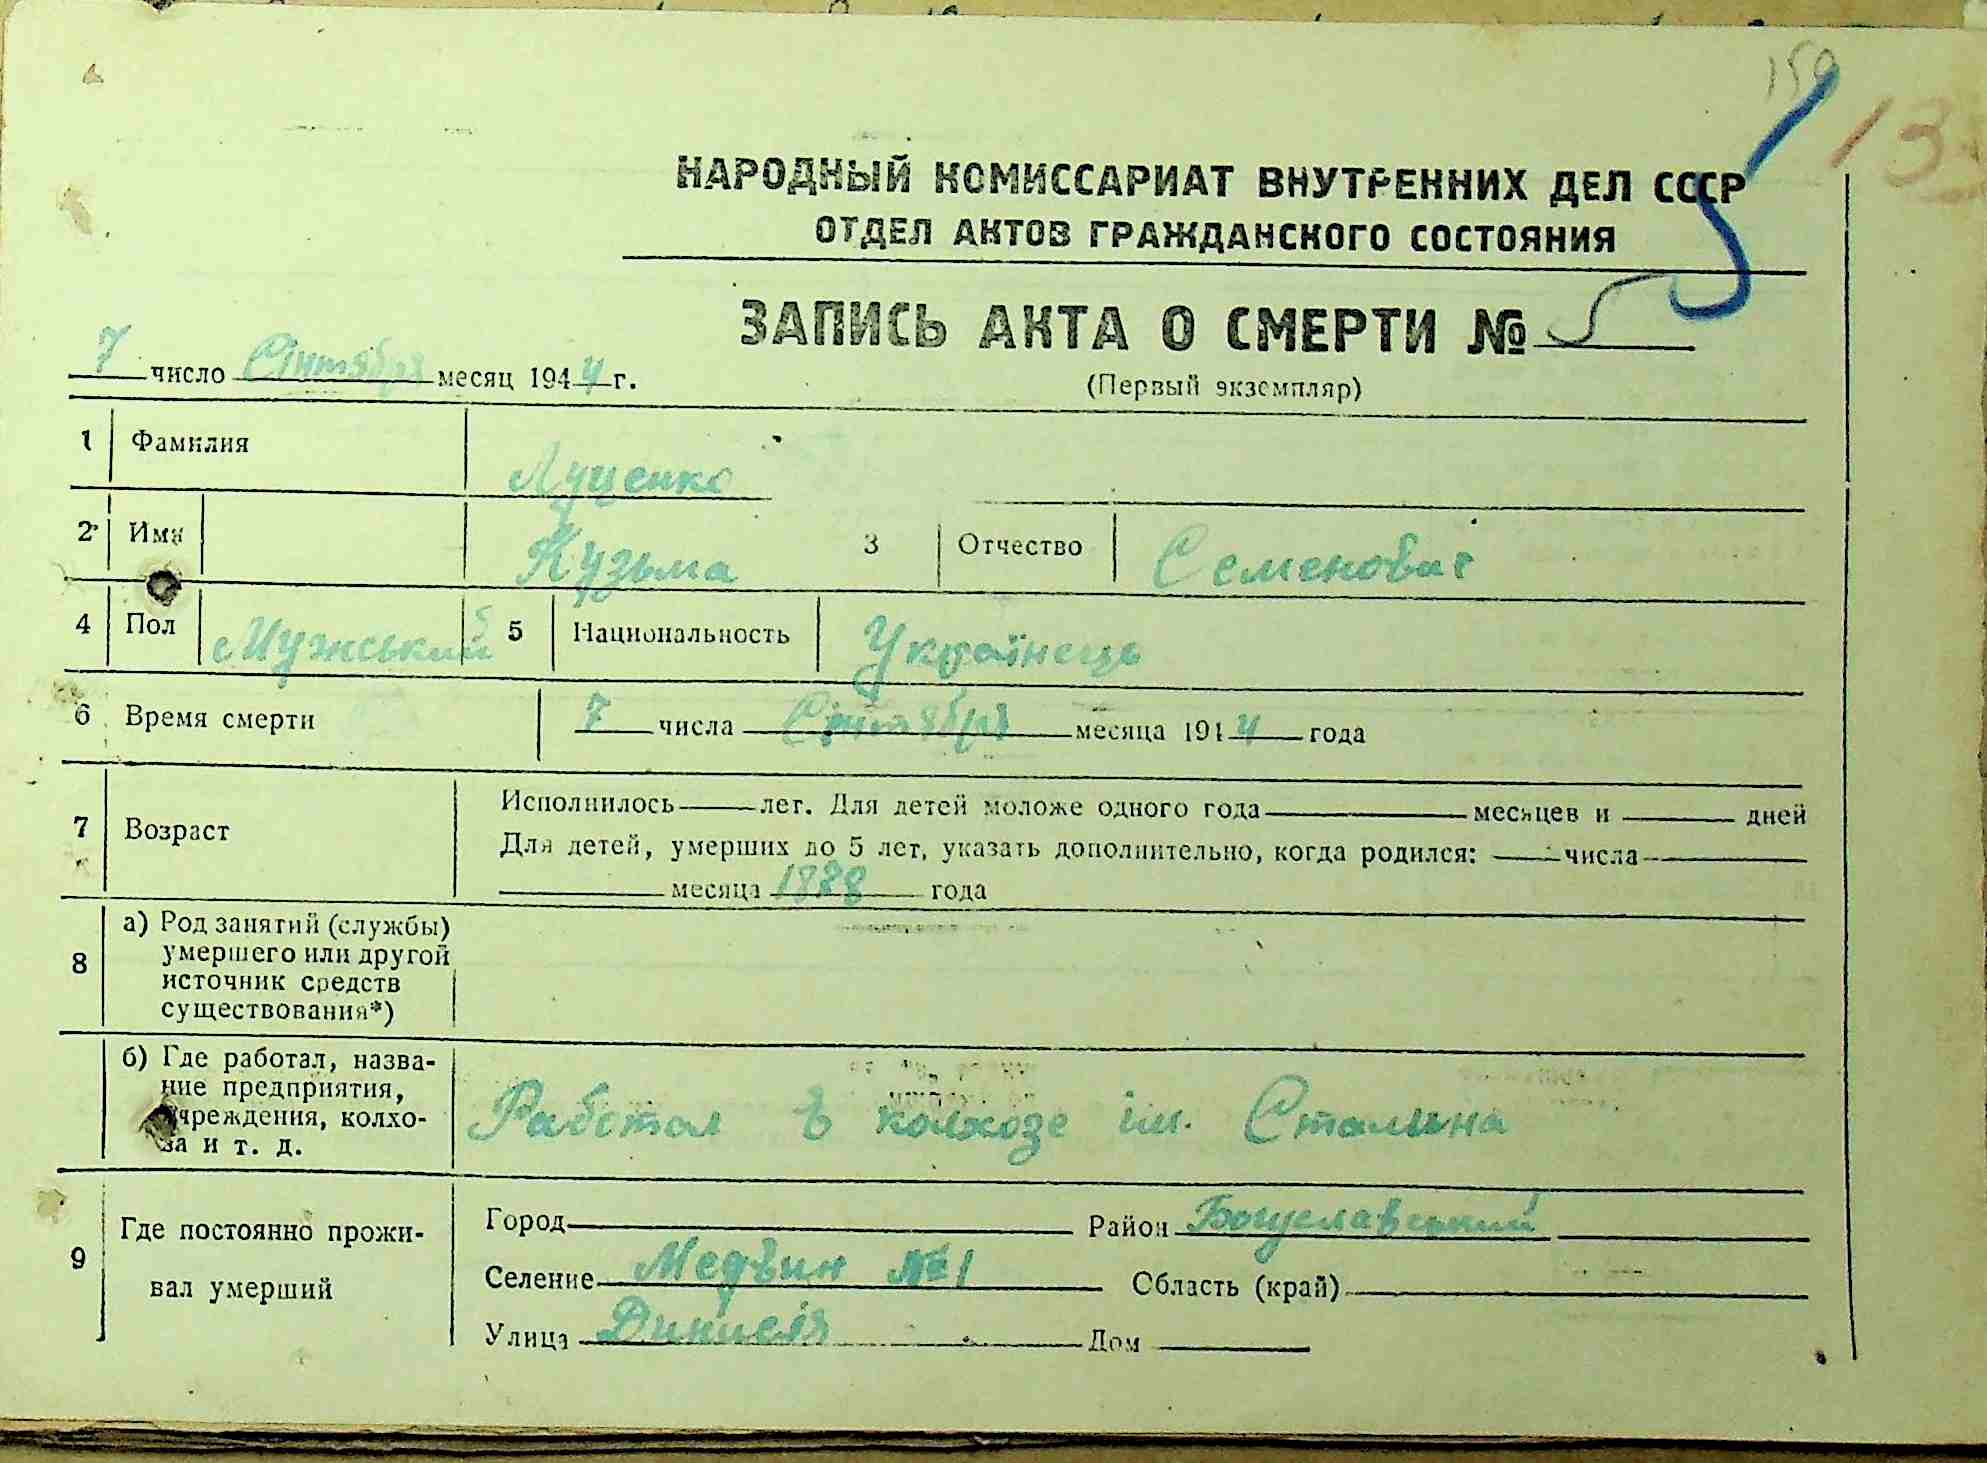 159
13
НАРОДНЫЙ КОМИССАРИАТ ВНУТРЕННИХ ДЕЛ СССР
ОТДЕЛ АКТОВ ГРАЖДАНСКОГО СОСТОЯНИЯ
ЗАПИСЬ АКТА О СМЕРТИ № 5
7 число Сінтября месяц 1944 г.
(Первый экземпляр)
1 Фамилия Луценко
2 Имя Кузьма 3 Отчество Семенович
4 Пол Мужський 5 Национальность Українець
6 Время смерти 7 числа Сінтября месяца 1944 года
7 Возраст Исполнилось лет. Для детей моложе одного года месяцев и дней
Для детей, умерших до 5 лет, указать дополнительно, когда родился: числа
месяца 1888 года
8 а) Род занятий (службы)
умершего или другой
источник средств
существования*)
б) Где работал, назва-
ние предприятия,
учреждения, колхо-
за и т. д.
Работал в колхозе ім. Сталина
9 Где постоянно прожи-
вал умерший
Город Район Богуславський
Селение Медвин №1 Область (край)
Улица Дом